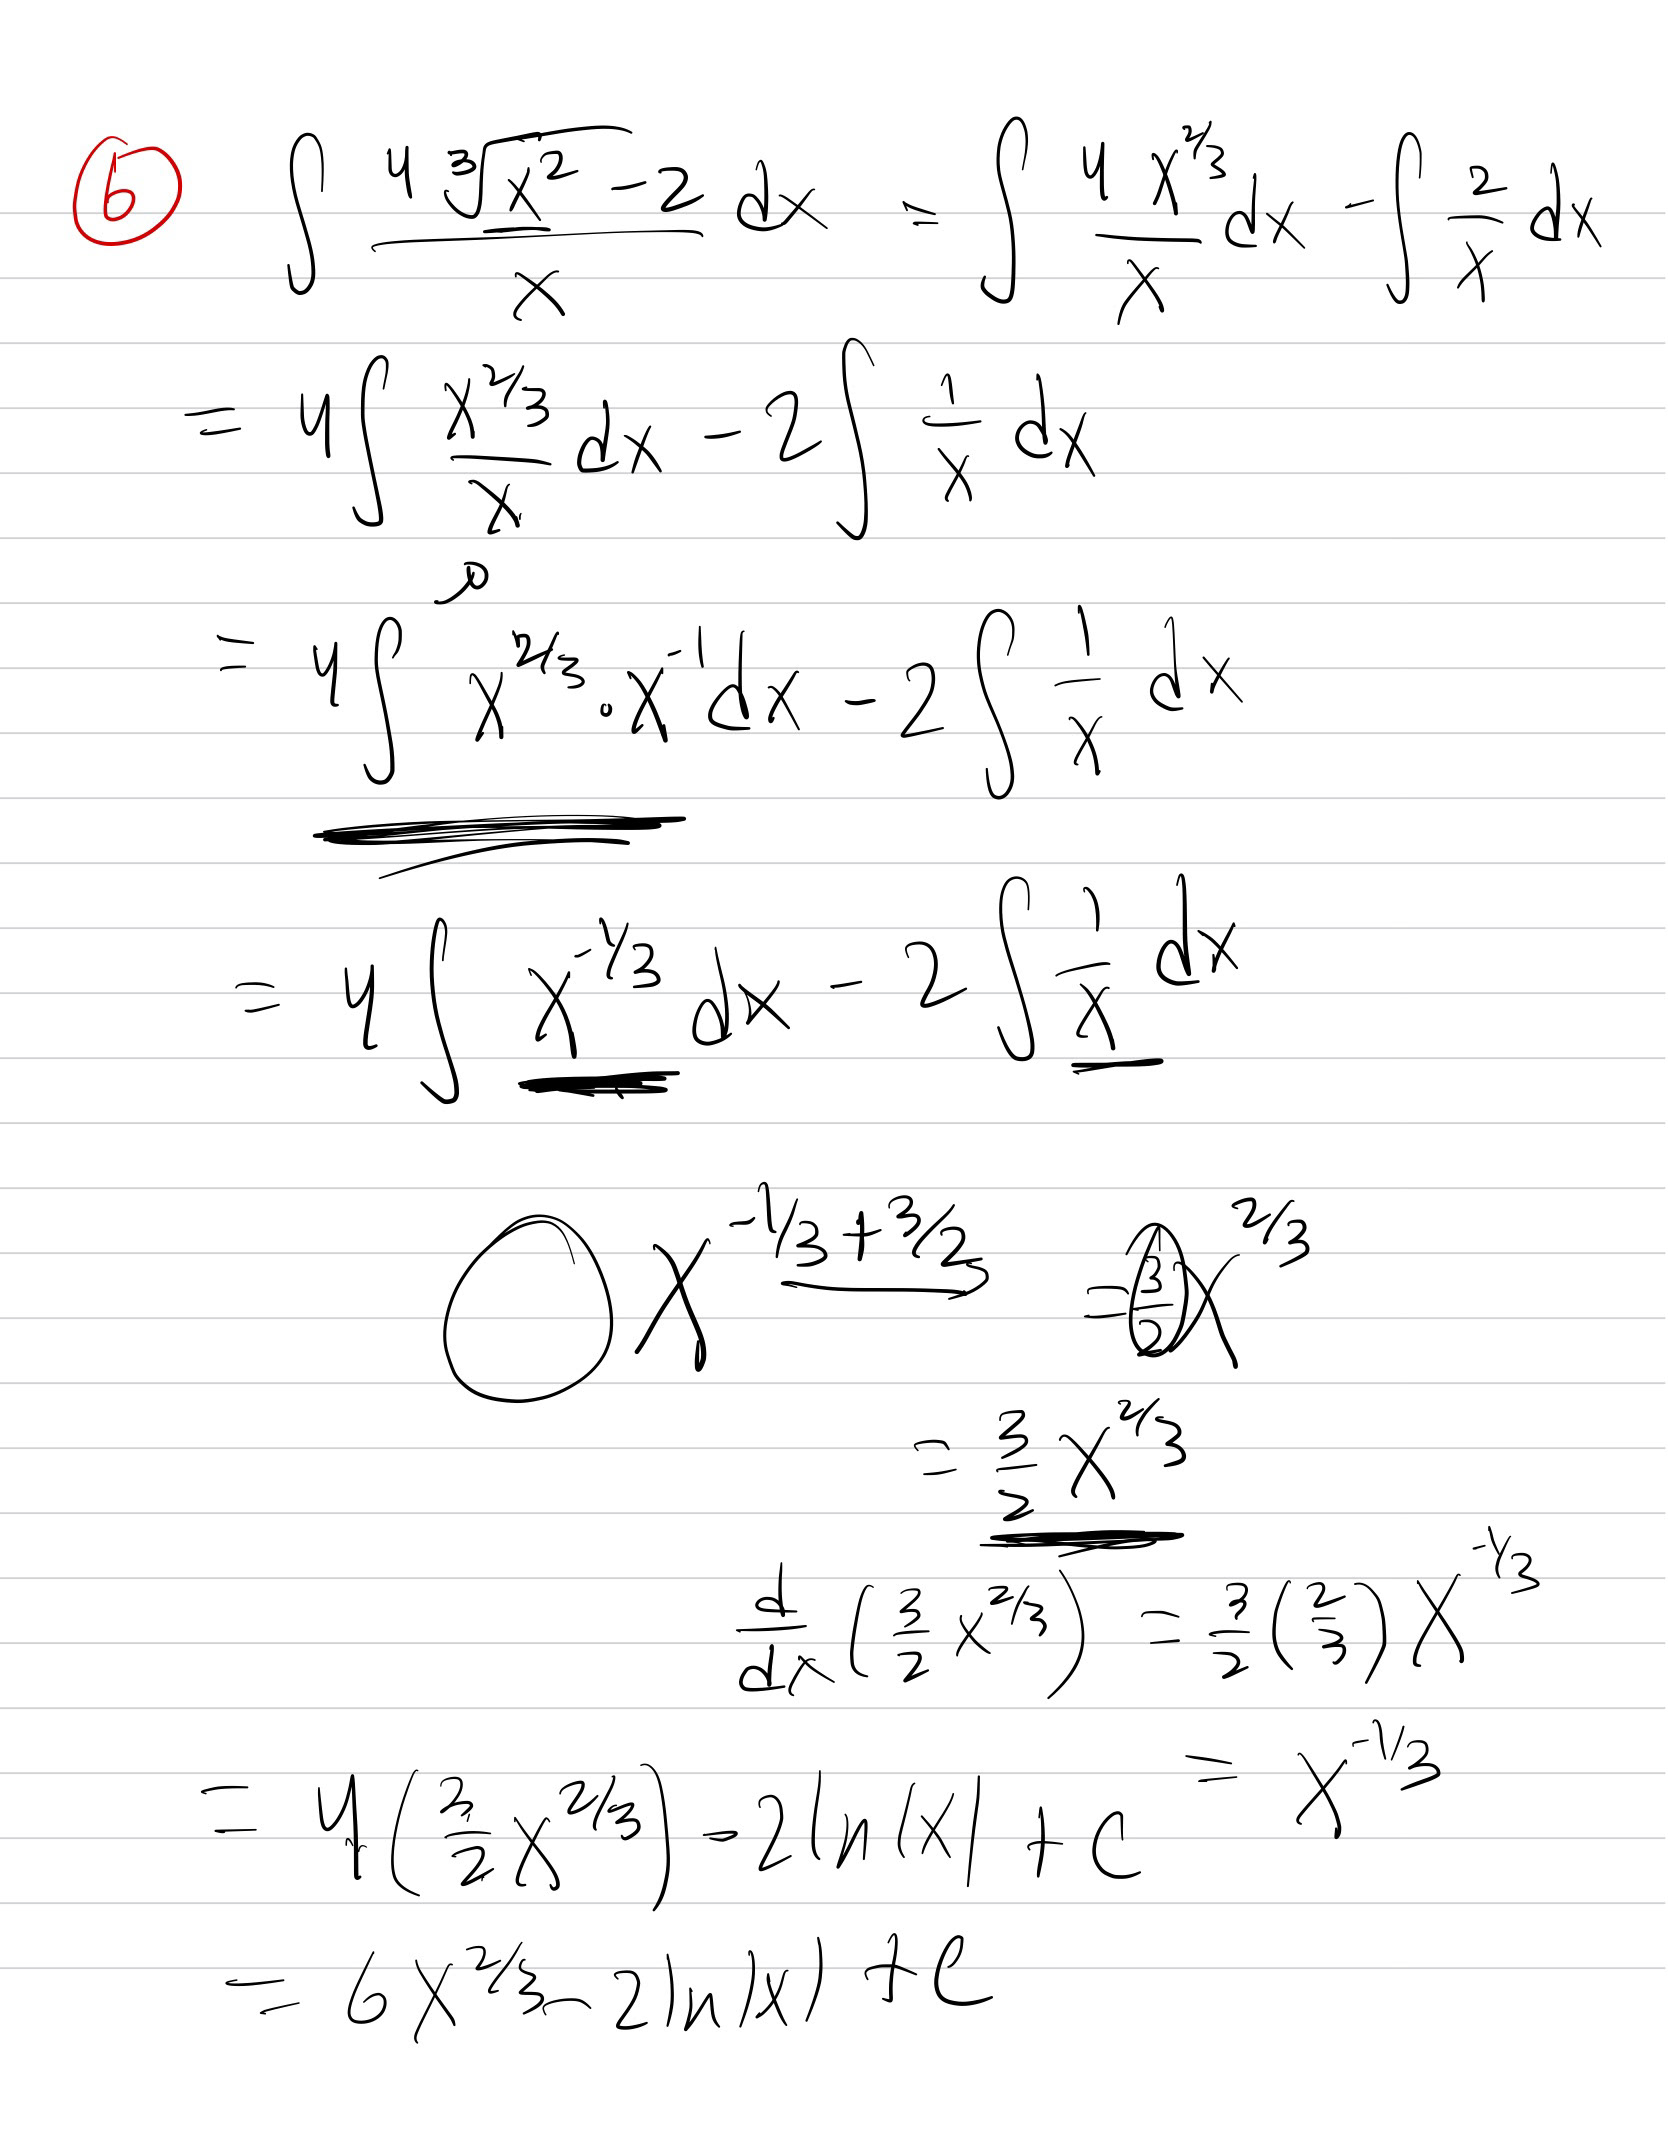 ⑥ ∫ (4 ∛(x²) - 2)/x dx = ∫ (4 x^(2/3))/x dx - ∫ 2/x dx
= 4∫ x^(2/3)/x dx - 2∫ 1/x dx
= 4∫ x^(2/3) · x^(-1) dx - 2∫ 1/x dx
= 4∫ x^(-1/3) dx - 2∫ 1/x dx
x^(-1/3 + 3/2) = 3/2 x^(2/3)
= 3/2 x^(2/3)
d/dx (3/2 x^(2/3)) = 3/2 (2/3) x^(-1/3)
= x^(-1/3)
= 4(3/2 x^(2/3)) - 2 ln|x| + C
= 6x^(2/3) - 2 ln|x| + C